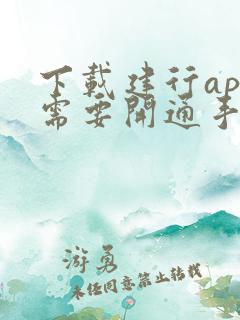 下載建行ap
需要開通手
游勇
未经同意禁止转载